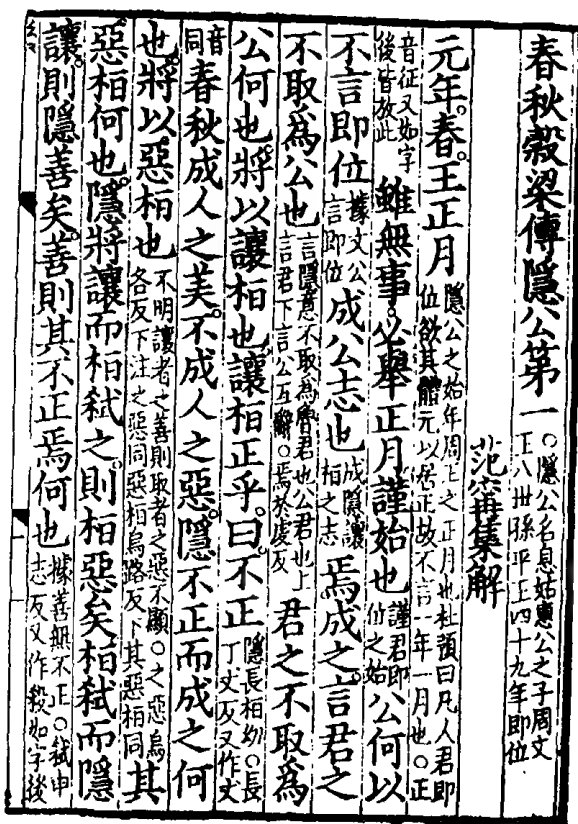 春秋穀梁傳隱公第一○隱公名息姑惠公之子周文王八丗孫平王四十九年即位
范甯集解
元年。春。王正月隱公之始年周王之正月也杜預曰凡人君即位欲其體元以居正故不言一年一月也○正
音征又如字後皆放此雖無事。必舉正月。謹始也謹君即位之始公何以
不言即位據文公言即位成公志也成隱讓桓之志焉成之。言君之
不取為公也言隱意不取為魯君也公君也上言君下言公互辭○焉於虔反君之不取為
公何也。將以讓桓也。讓桓正乎。曰。不正隱長桓幼○長丁丈反又作丈
音同春秋成人之美。不成人之惡。隱不正而成之何
也。將以惡桓也不明讓者之善則取者之惡不顯○之惡烏各反下注之惡同惡桓烏路反下其惡桓同其
惡桓何也。隱將讓而桓弒之。則桓惡矣。桓弒而隱
讓。則隱善矣。善則其不正焉何也據善無不正○弒申志反又作殺如字後